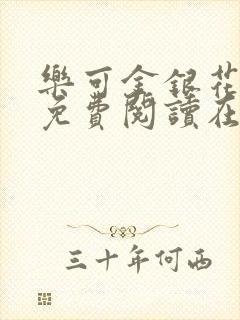 樂可金銀花
免費閱讀在
三十年何西